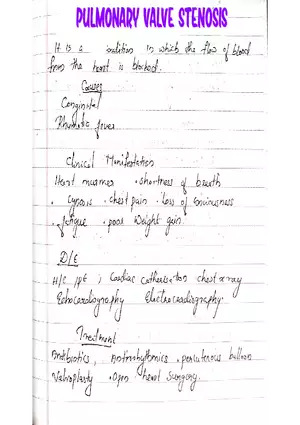 PULMONARY VALVE STENOSIS
It is a condition in which the flow of blood
from the heart is blocked.
Causes
Congenital
Rhumatic fever
Clinical Manifestation
Heart murmurs • shortness of breath
• Cynosis • chest pain • loss of conciuness
• fatigue • poor weight gain.
D/E
H/C, PE, Cardiac catheris tion chest xray
Echocardiography Electrocardiography.
Treatment
Antibiotics, Antirrhythmics • percuterous balloon
Valvoplasty • Open heart surgery.